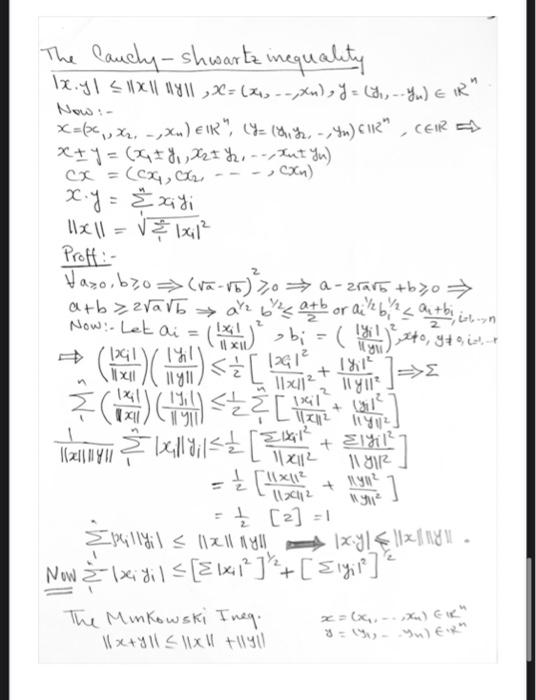 The Cauchy-shwartz inequality
|x.y| ≤ ||x|| ||y||, x=(x₁, --, xₙ), y=(y₁, -- yₙ) ∈ ℝⁿ
Now:-
x=(x₁, x₂, -, xₙ) ∈ ℝⁿ, (y=(y₁, y₂, -, yₙ) ∈ ℝⁿ, c∈ℝ ⇒
x±y = (x₁±y₁, x₂±y₂, --, xₙ±yₙ)
cx = (cx₁, cx₂, - - - -, cxₙ)
x.y = Σ₁ⁿ xᵢyᵢ
||x|| = √(Σ₁ⁿ |xᵢ|²)
Proff:-
∀a≥0, b≥0 ⇒ (√a-√b)² ≥0 ⇒ a-2√a√b+b≥0 ⇒
a+b ≥ 2√a√b ⇒ a^½ b^½ ≤ (a+b)/2 or aᵢ^½ bᵢ^½ ≤ (aᵢ+bᵢ)/2, i=1,--,n
Now:- Let aᵢ = (|xᵢ|/||x||)², bᵢ = (|yᵢ|/||y||)², x≠0, y≠0, i=1,--,n
⇒ (|xᵢ|/||x||)(|yᵢ|/||y||) ≤ ½[|xᵢ|²/||x||² + |yᵢ|²/||y||²] ⇒ Σ
Σ₁ⁿ (|xᵢ|/||x||)(|yᵢ|/||y||) ≤ ½ Σ₁ⁿ [|xᵢ|²/||x||² + |yᵢ|²/||y||²]
1/(||x|| ||y||) Σ₁ⁿ |xᵢ||yᵢ| ≤ ½[Σ|xᵢ|²/||x||² + Σ|yᵢ|²/||y||²]
= ½[||x||²/||x||² + ||y||²/||y||²]
= ½ [2] = 1
Σ₁ⁿ |xᵢ||yᵢ| ≤ ||x|| ||y|| ⇒ |x.y| ≤ ||x|| ||y|| .
Now Σ₁ⁿ |xᵢ yᵢ| ≤ [Σ|xᵢ|²]^½ + [Σ|yᵢ|²]^½
The Minkowski Ineq.
||x+y|| ≤ ||x|| + ||y||
x = (x₁, --, xₙ) ∈ ℝⁿ
y = (y₁, - - yₙ) ∈ ℝⁿ